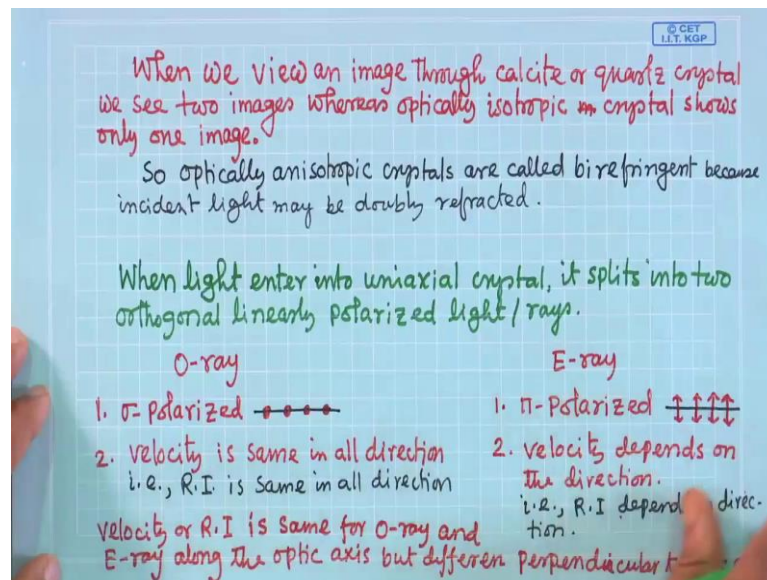 © CET
I.I.T. KGP
When we view an image through calcite or quartz crystal
we see two images whereas optically isotropic crystal shows
only one image.
So optically anisotropic crystals are called birefringent because
incident light may be doubly refracted.
When light enter into uniaxial crystal, it splits into two
orthogonal linearly polarized light/rays.
O-ray
E-ray
1. σ-Polarized
1. π-Polarized
2. velocity is same in all direction
i.e., R.I. is same in all direction
2. velocity depends on
the direction.
i.e., R.I depend direc-
tion.
velocity or R.I is same for O-ray and
E-ray along the optic axis but differen perpendicular